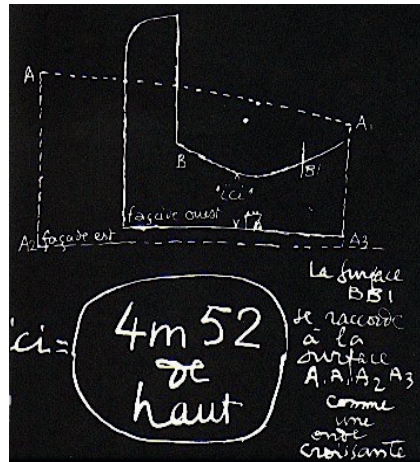 A
A1
B
B1
"ici"
façade ouest
A2 façade est
A3
ici=
4m 52
de
haut
La surface
BB1
se raccorde
à la
surface
A.A1A2A3
comme
une
onde
croissante